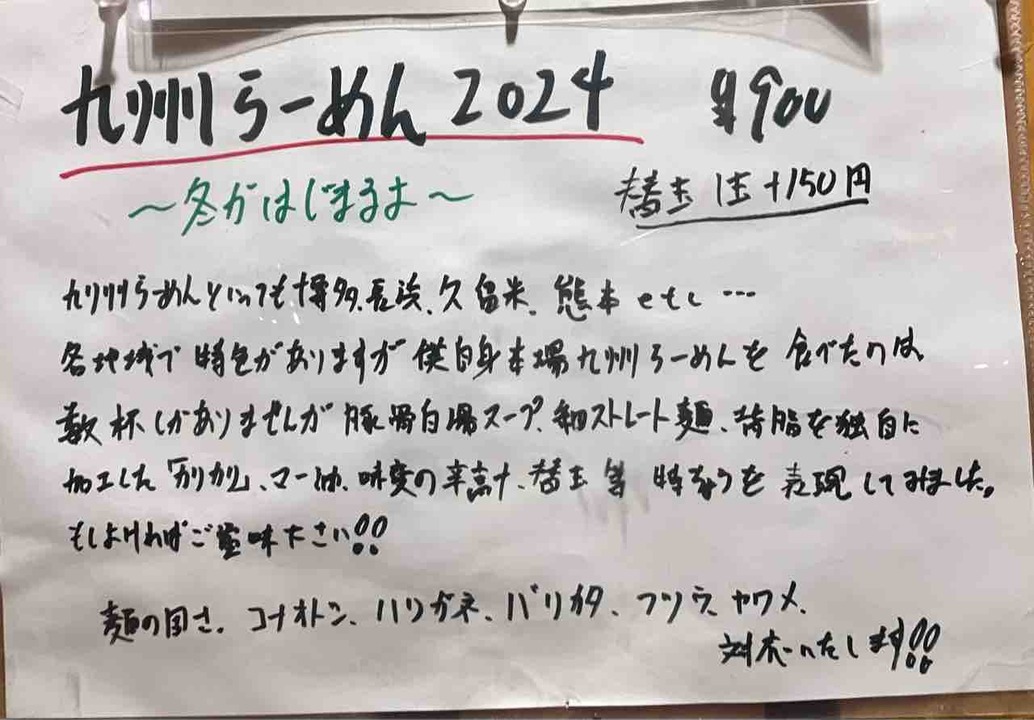 九州らーめん2024 ¥900
~冬がはじまるよ~ 替玉1玉+150円
九州らーめんといっても博多、長浜、久留米、熊本etc…
各地域で特色がありますが僕自身本場九州らーめんを食べたのは
数杯しかありませんが豚骨白湯スープ、細ストレート麺、背脂を独自に
加工した「カリカリ」、マー油、味変の辛高汁、替玉等特ちょうを表現してみました。
もしよければご賞味下さい!!
麺の固さ。コナオトシ、ハリガネ、バリカタ、フツウ、ヤワメ、
対応いたします!!